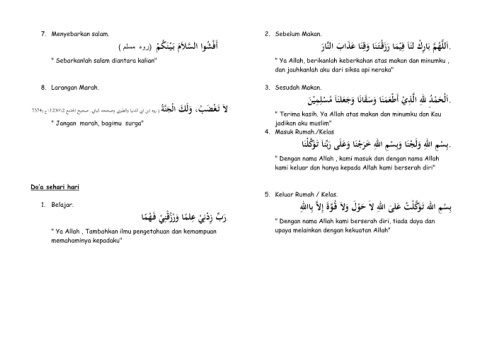 7. Menyebarkan salam.
أَفْشُوا السَّلاَمَ بَيْنَكُمْ (رواه مسلم)
" Sebarkanlah salam diantara kalian"
8. Larangan Marah.
لاَ تَغْضَبْ، وَلَكَ الْجَنَّةُ
" Jangan marah, bagimu surga"
Do'a sehari hari
1. Belajar.
رَبِّ زِدْنِيْ عِلْمًا وَرْزُقْنِيْ فَهْمًا
" Ya Allah , Tambahkan ilmu pengetahuan dan kemampuan
memahaminya kepadaku"
2. Sebelum Makan.
اَللَّهُمَّ بَارِكْ لَنَا فِيْمَا رَزَقْتَنَا وَقِنَا عَذَابَ النَّارِ.
" Ya Allah, berikanlah keberkahan atas makan dan minumku ,
dan jauhkanlah aku dari siksa api neraka"
3. Sesudah Makan.
اَلْحَمْدُ لِلَّهِ الَّذِيْ أَطْعَمَنَا وَسَقَانَا وَجَعَلَنَا مُسْلِمِيْنَ.
" Terima kasih, Ya Allah atas makan dan minumku dan Kau
jadikan aku muslim"
4. Masuk Rumah /Kelas
بِسْمِ اللهِ وَلَجْنَا وَبِسْمِ اللهِ خَرَجْنَا وَعَلَى رَبِّنَا تَوَكَّلْنَا.
" Dengan nama Allah , kami masuk dan dengan nama Allah
kami keluar dan hanya kepada Allah kami berserah diri"
5. Keluar Rumah / Kelas.
بِسْمِ اللهِ تَوَكَّلْتُ عَلَى اللهِ لاَ حَوْلَ وَلاَ قُوَّةَ إِلاَّ بِاللهِ.
" Dengan nama Allah kami berserah diri, tiada daya dan
upaya melainkan dengan kekuatan Allah"